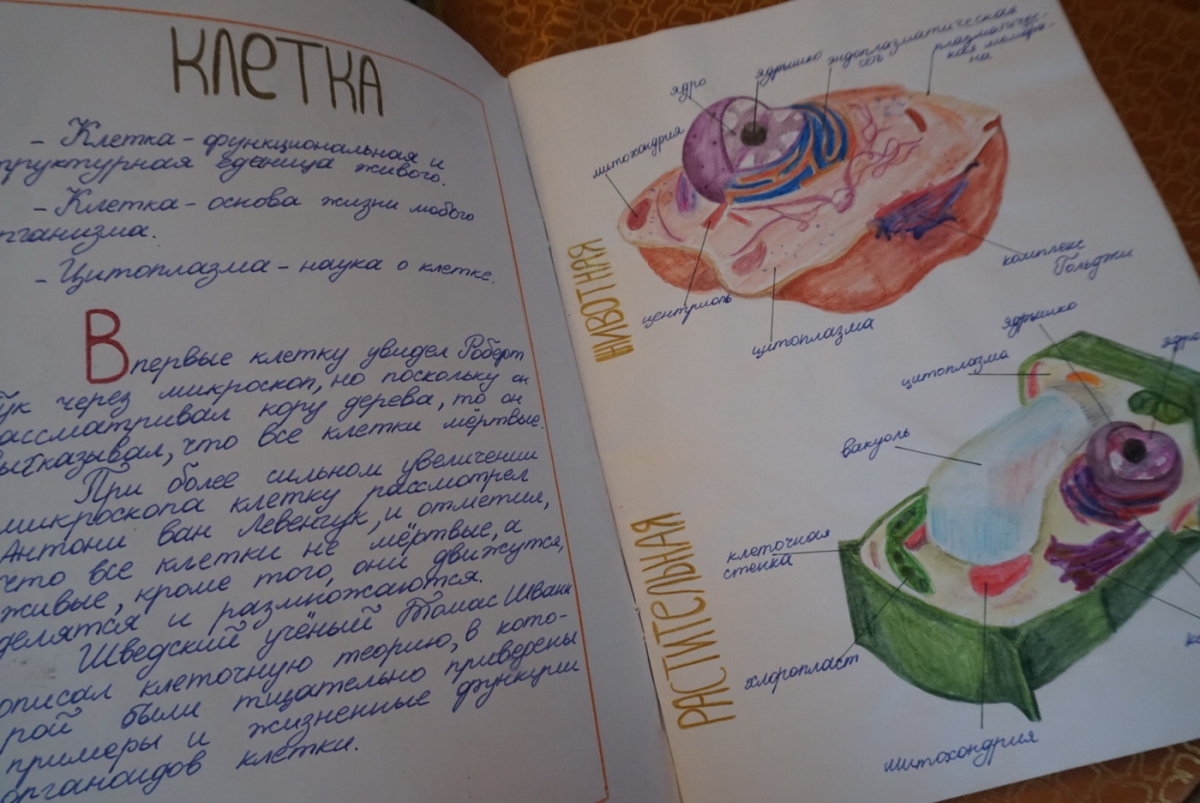 КЛЕТКА
- Клетка - функциональная и
труктурная еденица живого.
- Клетка - основа жизни любого
рганизма.
- Цитоплазма - наука о клетке.
Впервые клетку увидел Роберт
Гук через микроскоп, но поскольку он
ассматривал кору дерева, то он
высказывал, что все клетки мёртвые.
При более сильном увеличении
микроскопа клетку рассмотрел
Антони ван Левенгук, и отметил,
что все клетки не мёртвые, а
живые, кроме того, они движутся,
делятся и размножаются.
Шведский учёный Томас Шванн
описал клеточную теорию, в кото-
рой были тщательно приведены
примеры и жизненные функции
органоидов клетки.
ЖИВОТНАЯ
митохондрия
ядро
ядрышко
эндоплазматическая
сеть
плазматичес-
кая мембра-
на
комплекс
Гольджи
центриоль
цитоплазма
РАСТИТЕЛЬНАЯ
ядрышко
ядро
цитоплазма
вакуоль
клеточная
стенка
хлоропласт
митохондрия